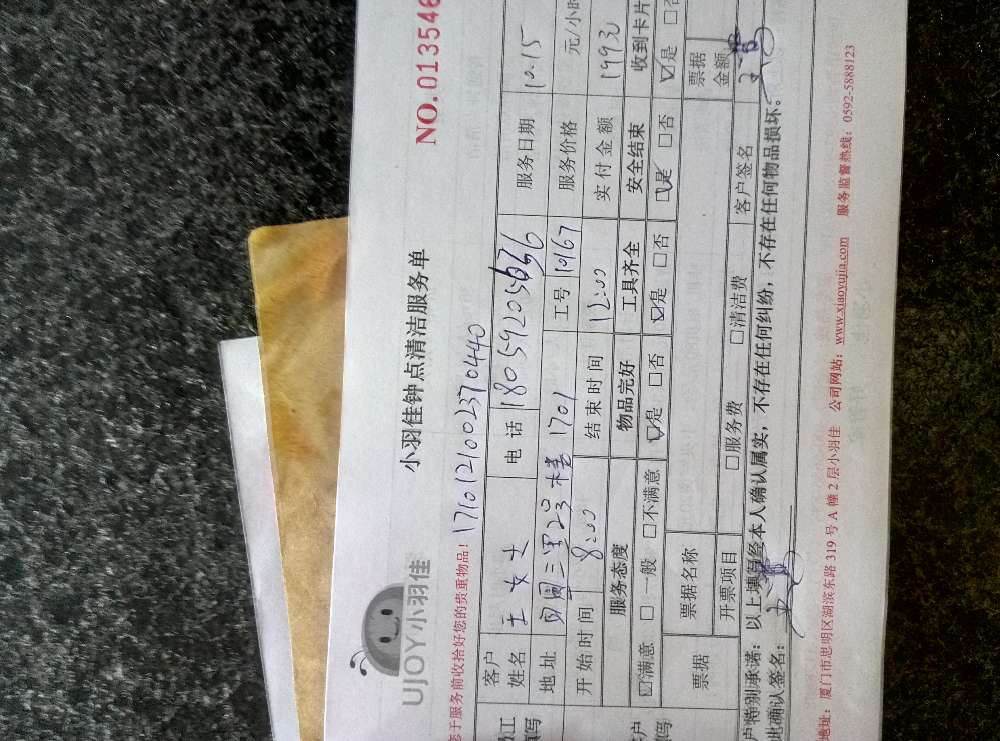 NO.013546
小羽佳钟点清洁服务单
UJOY小羽佳
于服务前收拾好您的贵重物品! 1710121002370440
客户姓名 王女士 电话 18059205636 服务日期 10.15
地址 贝圈三里23号楼1701 工号 10167 服务价格 元/小时
开始时间 8:00 结束时间 12:00 实付金额 199元
服务态度 物品完好 工具齐全 安全结束 收到卡片
☑满意 □一般 □不满意 ☑是 □否 ☑是 □否 ☑是 □否 ☑是 □否
票据 票据名称 票据金额
开票项目 □服务费 □清洁费 客户签名
户特别承诺: 以上填写经本人确认属实,不存在任何纠纷,不存在任何物品损坏。
此确认签名:
地址: 厦门市思明区湖滨东路319号A幢2层小羽佳 公司网站: www.xiaoyujia.com 服务监督热线: 0592-5888123